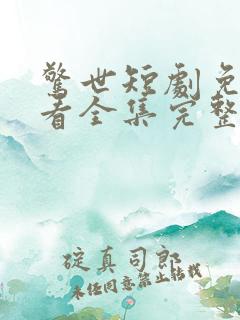 驚世短劇免
看全集完整
碇真司郎
未经同意禁止转载